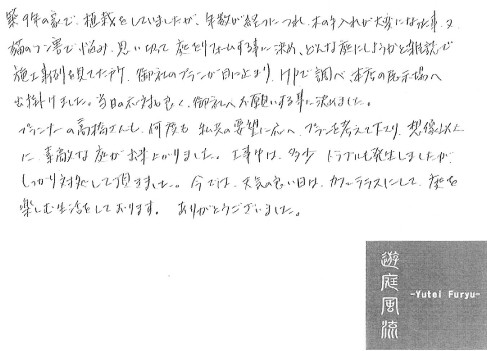 築9年の家で、植栽をしていましたが、年数が経つにつれ、木の手入れが大変になる事、又
猫のフン害で悩み、思い切って庭をリフォームする事に決め、どんな庭にしようかと雑誌で
施工事例を見てた所、御社のプランが目に止まり、HPで調べ、本店の展示場へ
出掛けました。当日の応対も良く、御社へお願いする事に決めました。
プランナーの高橋さんも、何度も私共の要望に応へ、プランを考えて下さり、想像以上
に、素敵な庭が出来上がりました。工事中は、多少トラブルも発生しましたが、
しっかり対処して頂きました。今では、天気の良い日は、カフェテラスにして、庭を
楽しむ生活をしております。ありがとうございました。
遊庭風流
-Yutei Furyu-